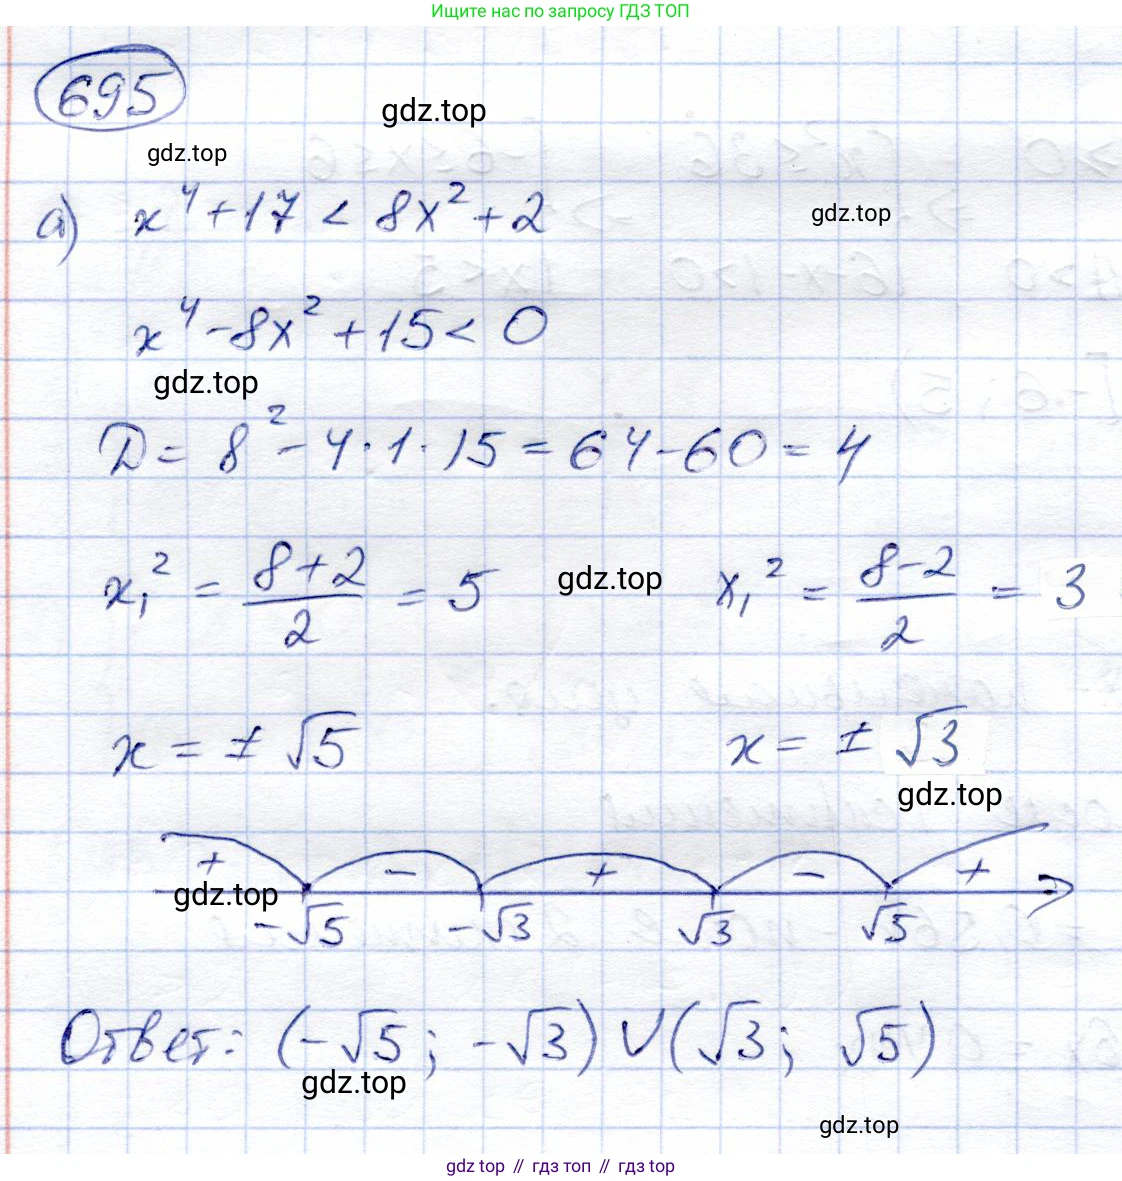 Ищите нас по запросу ГДЗ ТОП
695
gdz.top
gdz.top
а) x⁴ + 17 < 8x² + 2
gdz.top
x⁴ - 8x² + 15 < 0
gdz.top
D = 8² - 4 · 1 · 15 = 64 - 60 = 4
x₁² = (8+2)/2 = 5 gdz.top x₁² = (8-2)/2 = 3
x = ± √5 x = ± √3
gdz.top
+ - + - +
gdz.top
-√5 -√3 √3 √5
Ответ: (-√5; -√3) ∪ (√3; √5)
gdz.top
gdz.top
gdz top // гдз топ // гдз top